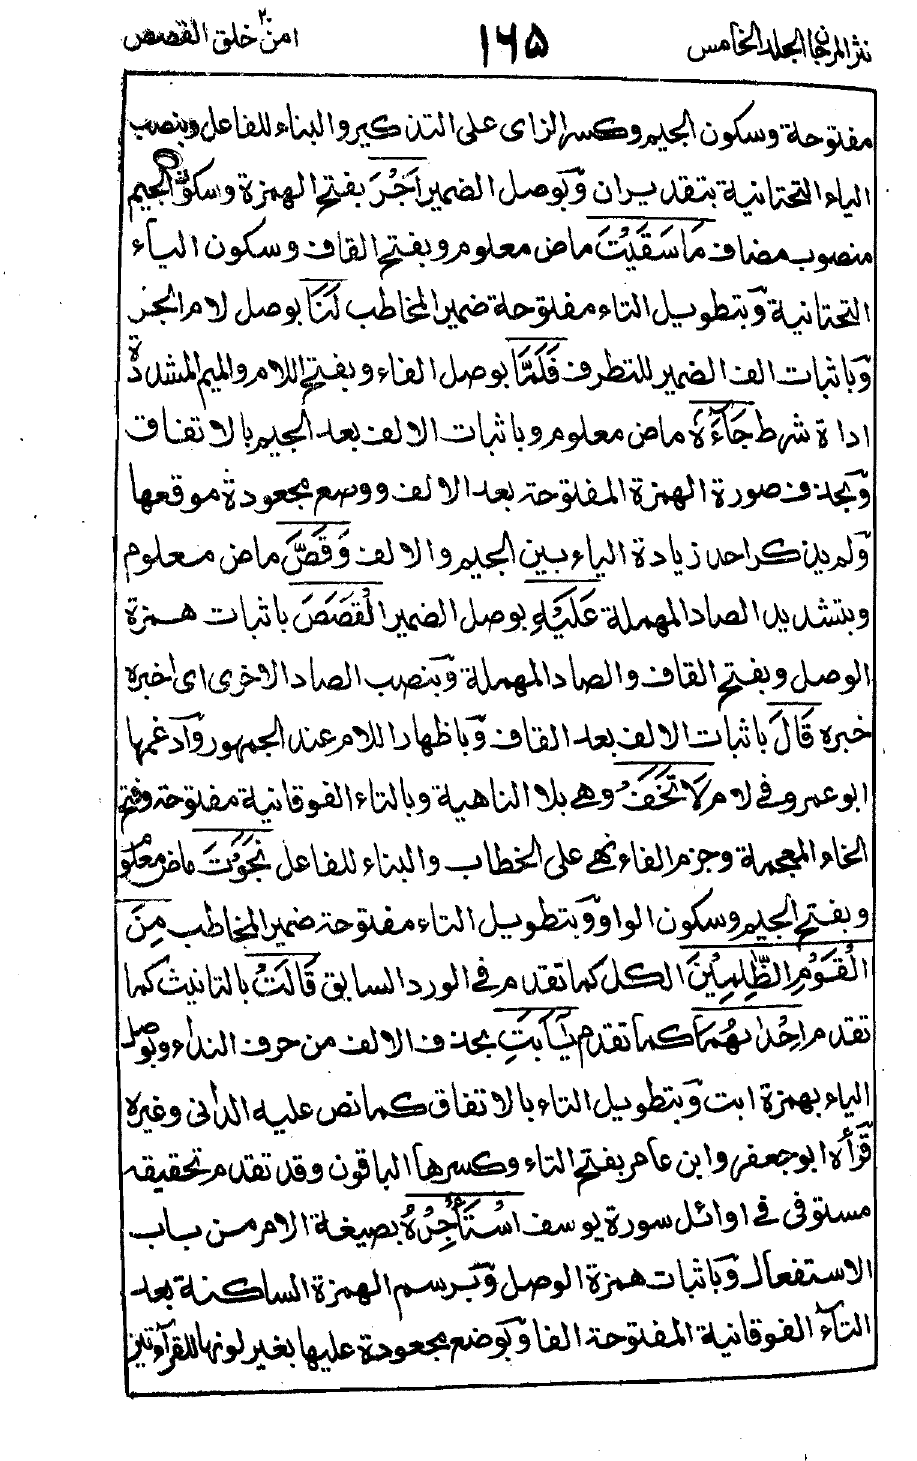 نثر المرجان الجلد الخامس ١٦٥ امن ٢٠ خلق القصص
مفتوحة وسكون الجيم وكسر الزاى على التذكير والبناء للفاعل وبنصب
الياء التحتانية بتقديران وَبوصل الضمير اَجْرَ بفتح الهمزة وسكون الجيم
منصوب مضاف مَا سَقَيْتَ ماض معلوم وبفتح القاف وسكون الياء
التحتانية وَبتطويل التاء مفتوحة ضمير المخاطب لَنَا بوصل لام الجر
وَباثبات الف الضمير للتطرف فَلَمَّا بوصل الفاء وبفتح اللام والميم المشددة
اداة شرط جَآءَهٗ ماض معلوم وباثبات الالف بعد الجيم بالاتفاق
وَبحذف صورة الهمزة المفتوحة بعد الالف ووضع مجعودة موقعها
وَلم يذكر احد زيادة الياء بين الجيم والالف وَقَصَّ ماض معلوم
وبتشديد الصاد المهملة عَلَيْهِ بوصل الضمير الْقَصَصَ باثبات همزة
الوصل وبفتح القاف والصاد المهملة وَبنصب الصاد الاخرى اى اخبره
خبره قَالَ باثبات الالف بعد القاف وَباظهار اللام عند الجمهور وَادغمها
ابو عمرو فى لام لَا تَخَفْ وهى بلا الناهية وبالتاء الفوقانية مفتوحة وفتح
الخاء المعجمة وجزم الفاء نهى على الخطاب والبناء للفاعل نَجَوْتَ ماض معلوم
وبفتح الجيم وسكون الواو وَبتطويل التاء مفتوحة ضمير المخاطب مِنَ
الْقَوْمِ الظّٰلِمِيْنَ الكل كما تقدم فى الورد السابق قَالَتْ بالتانيث كما
تقدم اِحْدٰىهُمَا كما تقدم يٰٓاَبَتِ بحذف الالف من حرف النداء وبوصل
الياء بهمزة ابت وَبتطويل التاء بالاتفاق كما نص عليه الدانى وغيره
قَرأه ابو جعفر وابن عامر بفتح التاء وكسرها الباقون وقد تقدم تحقيقه
مستوفى فى اوائل سورة يوسف اسْتَأْجِرْهُ بصيغة الامر من باب
الاستفعال وَباثبات همزة الوصل وَبرسم الهمزة الساكنة بعد
التآء الفوقانية المفتوحة الفا وَبوضع مجعودة عليها بغير لونها للقرآءتين